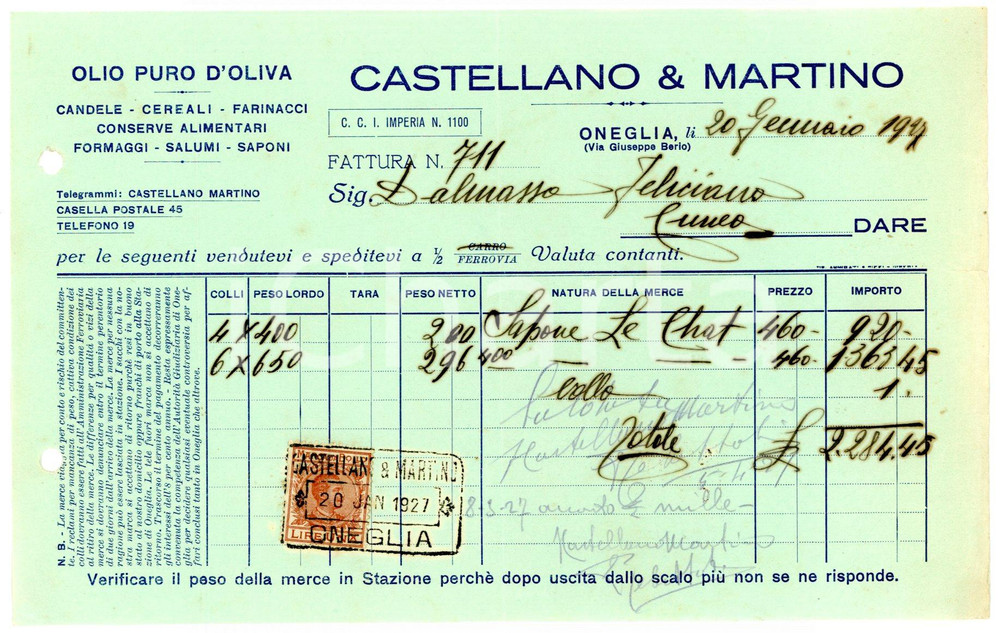 OLIO PURO D'OLIVA
CANDELE - CEREALI - FARINACCI
CONSERVE ALIMENTARI
FORMAGGI - SALUMI - SAPONI
Telegrammi: CASTELLANO MARTINO
CASELLA POSTALE 45
TELEFONO 19
CASTELLANO & MARTINO
C. C. I. IMPERIA N. 1100
ONEGLIA, li 20 Gennaio 1927
(Via Giuseppe Berio)
FATTURA N. 711
Sig. Dalmasso Feliciano
Cuneo DARE
per le seguenti vendutevi e speditevi a ½ CARRO FERROVIA Valuta contanti.
COLLI PESO LORDO TARA PESO NETTO NATURA DELLA MERCE PREZZO IMPORTO
4 X 400 200 Sapone Le Chat 460- 920-
6 X 650 296,400 460- 1363.45
bollo 1.
Totale £ 2.284.45
N. B. - La merce viaggia per conto e rischio del committente. I reclami per mancanza di peso, cattiva condizione dei
colli dovranno essere fatti all'Amministrazione Ferroviaria
al ritiro della merce. Le differenze per qualità o vizi della
merce si dovranno denunciare entro il termine perentorio
di due giorni dall'arrivo della merce. La merce per nessuna
ragione può essere lasciata in stazione. I sacchi con la nostra marca si accettano di ritorno purchè resi in buono
stato al nostro domicilio oppure franchi di porto alla Stazione di Oneglia. Le tele fuori marca non si accettano di
ritorno. Trascorso il termine del pagamento decorreranno
gli interessi dell'8 per cento annuo. - Resta espressamente
convenuta la competenza dell'Autorità Giudiziaria di Oneglia per decidere qualsiasi eventuale controversia per affari conclusi tanto in Oneglia che altrove.
CASTELLANO & MARTINO
20 JAN 1927
ONEGLIA
LIRE
8-3-27 mille
Castellano Martino
Verificare il peso della merce in Stazione perchè dopo uscita dallo scalo più non se ne risponde.